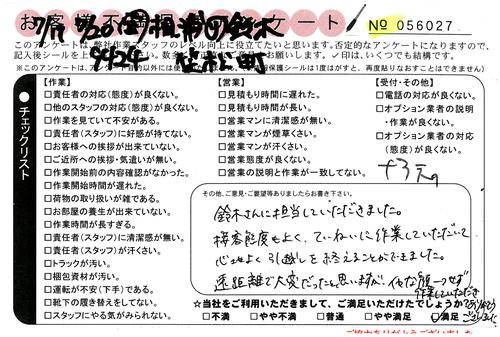 お客様不満足アンケート
№ 056027
このアンケートは、弊社作業スタッフのレベル向上に役立てたいと思います。否定的なアンケートになりますので、
✓印は、いくつでも結構です。
チェックリスト
【作業】
□責任者の対応(態度)が良くない。
□他のスタッフの対応(態度)が良くない。
□作業を見ていて不安がある。
□責任者(スタッフ)に好感が持てない。
□お客様への挨拶が出来ていない。
□ご近所への挨拶・気遣いが無い。
□作業開始前の内容確認がなかった。
□作業開始時間が遅れた。
□荷物の取り扱いが雑である。
□お部屋の養生が出来ていない。
□作業時間が長すぎる。
□責任者(スタッフ)に清潔感が無い。
□責任者(スタッフ)が汗くさい。
□トラックが汚い。
□梱包資材が汚い。
□運転が不安(下手)である。
□靴下の履き替えをしてない。
□スタッフにやる気がみられない。
【営業】
□見積もり時間に遅れた。
□見積もり時間が長い。
□営業マンに清潔感が無い。
□営業マンが煙草くさい。
□営業マンが汗くさい。
□営業態度が良くない。
□営業の説明と作業が一致してない。
【受付・その他】
□電話の対応が良くない。
□オプション業者の説明
・作業が良くない。
□オプション業者の対応
(態度)が良くない。
その他、ご意見・ご要望等ありましたらお書き下さい。
鈴木さんに担当していただきました。
接客態度もよく、ていねいに作業していただいて
心地よく引越しを終えることができました。
遠距離で大変だったと思いますが、イヤな顔一つせず
作業していただき
ありがとうございました。
☆当社をご利用いただきまして、ご満足いただけたでしょうか
□不満 □やや不満 □普通 □やや満足 ☑満足